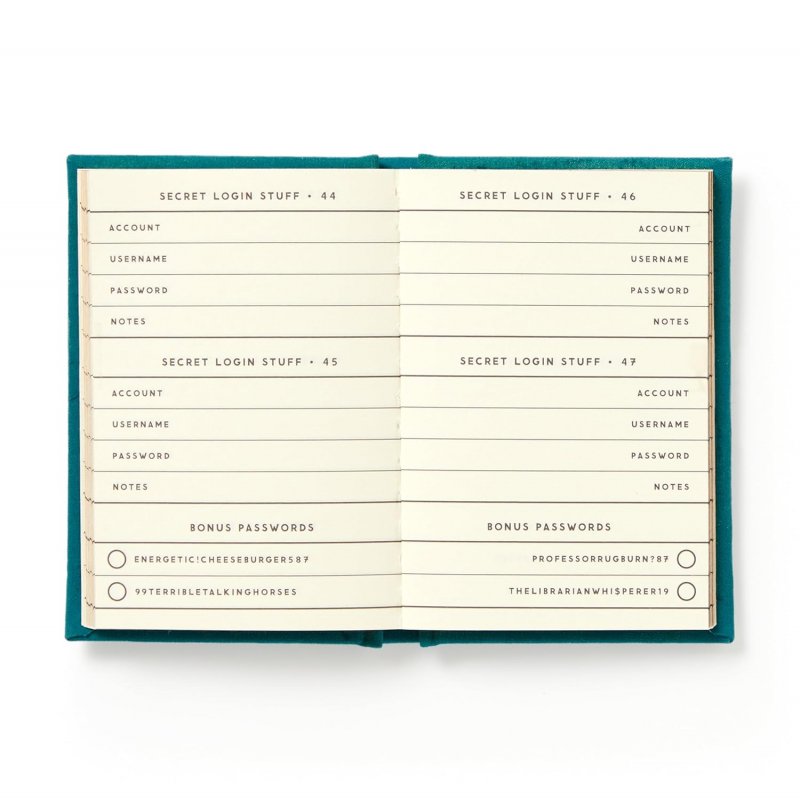 SECRET LOGIN STUFF • 44
ACCOUNT
USERNAME
PASSWORD
NOTES
SECRET LOGIN STUFF • 45
ACCOUNT
USERNAME
PASSWORD
NOTES
BONUS PASSWORDS
ENERGETIC!CHEESEBURGER587
99TERRIBLETALKINGHORSES
SECRET LOGIN STUFF • 46
ACCOUNT
USERNAME
PASSWORD
NOTES
SECRET LOGIN STUFF • 47
ACCOUNT
USERNAME
PASSWORD
NOTES
BONUS PASSWORDS
PROFESSORRUGBURN?87
THELIBRARIANWHI$PERER19